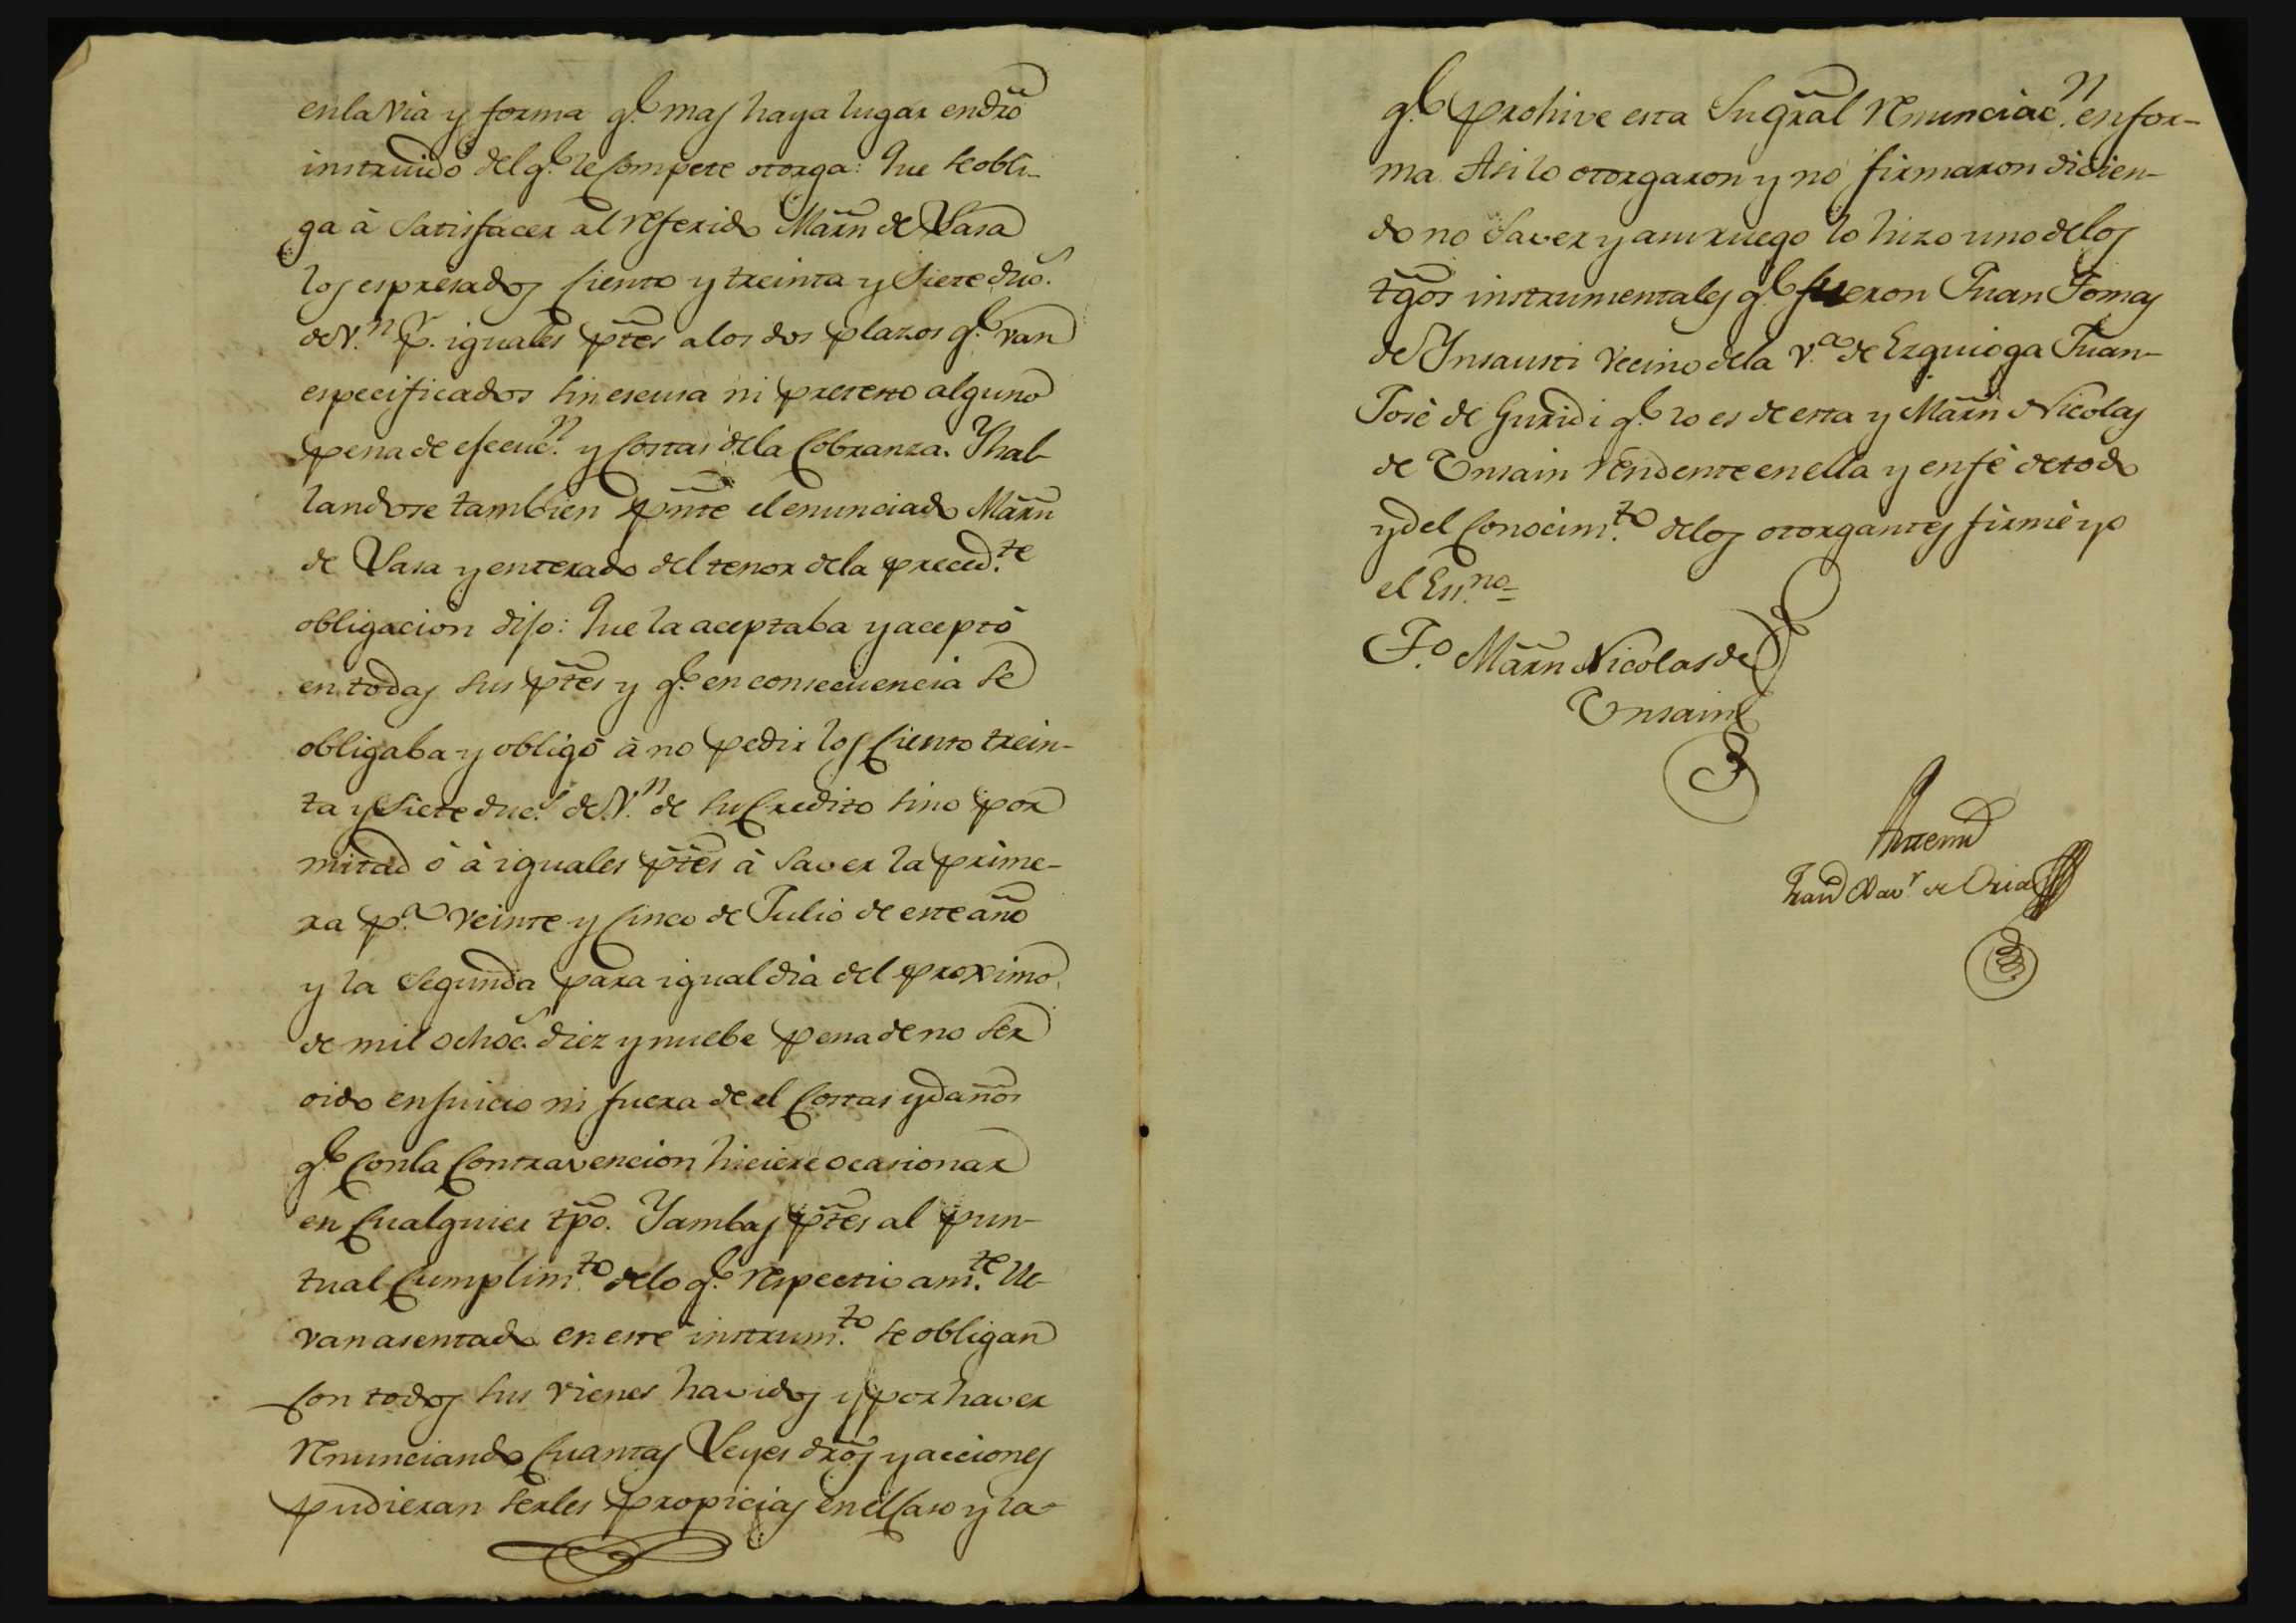 en la via y forma q.e mas haya lugar en dr̃o
instruido del q.e le compete otorga: Que se obli-
ga à satisfacer al referido Mãrn de Lasa
los espresados ciento y treinta y siete duc.s
de V.n p.r iguales p̃tes a los dos plazos q.e van
especificados sin escusa ni pretesto alguno
pena de ejecuc.n y costas de la cobranza. Y hal-
landose tambien p̃nte el enunciado Mãrn
de Lasa y enterado del tenor de la preced.te
obligacion dijo: Que la aceptaba y aceptó
en todas sus p̃tes y q.e en consecuencia se
obligaba y obligó à no pedir los ciento trein-
ta y siete duc.s de V.n de su credito sino por
mitad ó à iguales p̃tes à saver la prime-
ra p.a veinte y cinco de Julio de este año
y la segunda para igual dia del proximo
de mil ochoc.s diez y nuebe pena de no ser
oido en juicio ni fuera de el costas y daños
q.e con la contravencion hiciere ocasionar
en cualquier tp̃o. Y ambas p̃tes al pun-
tual cumplim.to de lo q.e respectivam.te lle-
van asentado en este instrum.to se obligan
con todos sus vienes havidos y por haver
renunciando cuantas Leyes dr̃os y acciones
pudieran serles propicias en el caso y la
q.e prohive esta su gr̃al renunciac.n en for-
ma. Asi lo otorgaron y no firmaron dicien-
do no saver y a su ruego lo hizo uno de los
tg̃os instrumentales q.e fueron Juan Tomas
de Ynsausti vecino de la v.a de Ezquioga Juan
José de Guridi q.e lo es de esta y Mãrn Nicolas
de Unsain residente en ella y en fé de todo
y del conocim.to de los otorgantes firmé yo
el Es.no=
T.o Mãrn Nicolas de
Unsain
Antemi
Fran.co Xav.r de Oria